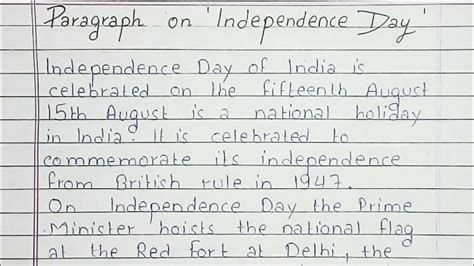 Paragraph on 'Independence Day'
Independence Day of India is
celebrated on the fifteenth August
15th August is a national holiday
in India. It is celebrated to
commemorate its independence
from British rule in 1947.
On Independence Day the Prime
Minister hoists the national flag
at the Red Fort at Delhi, the